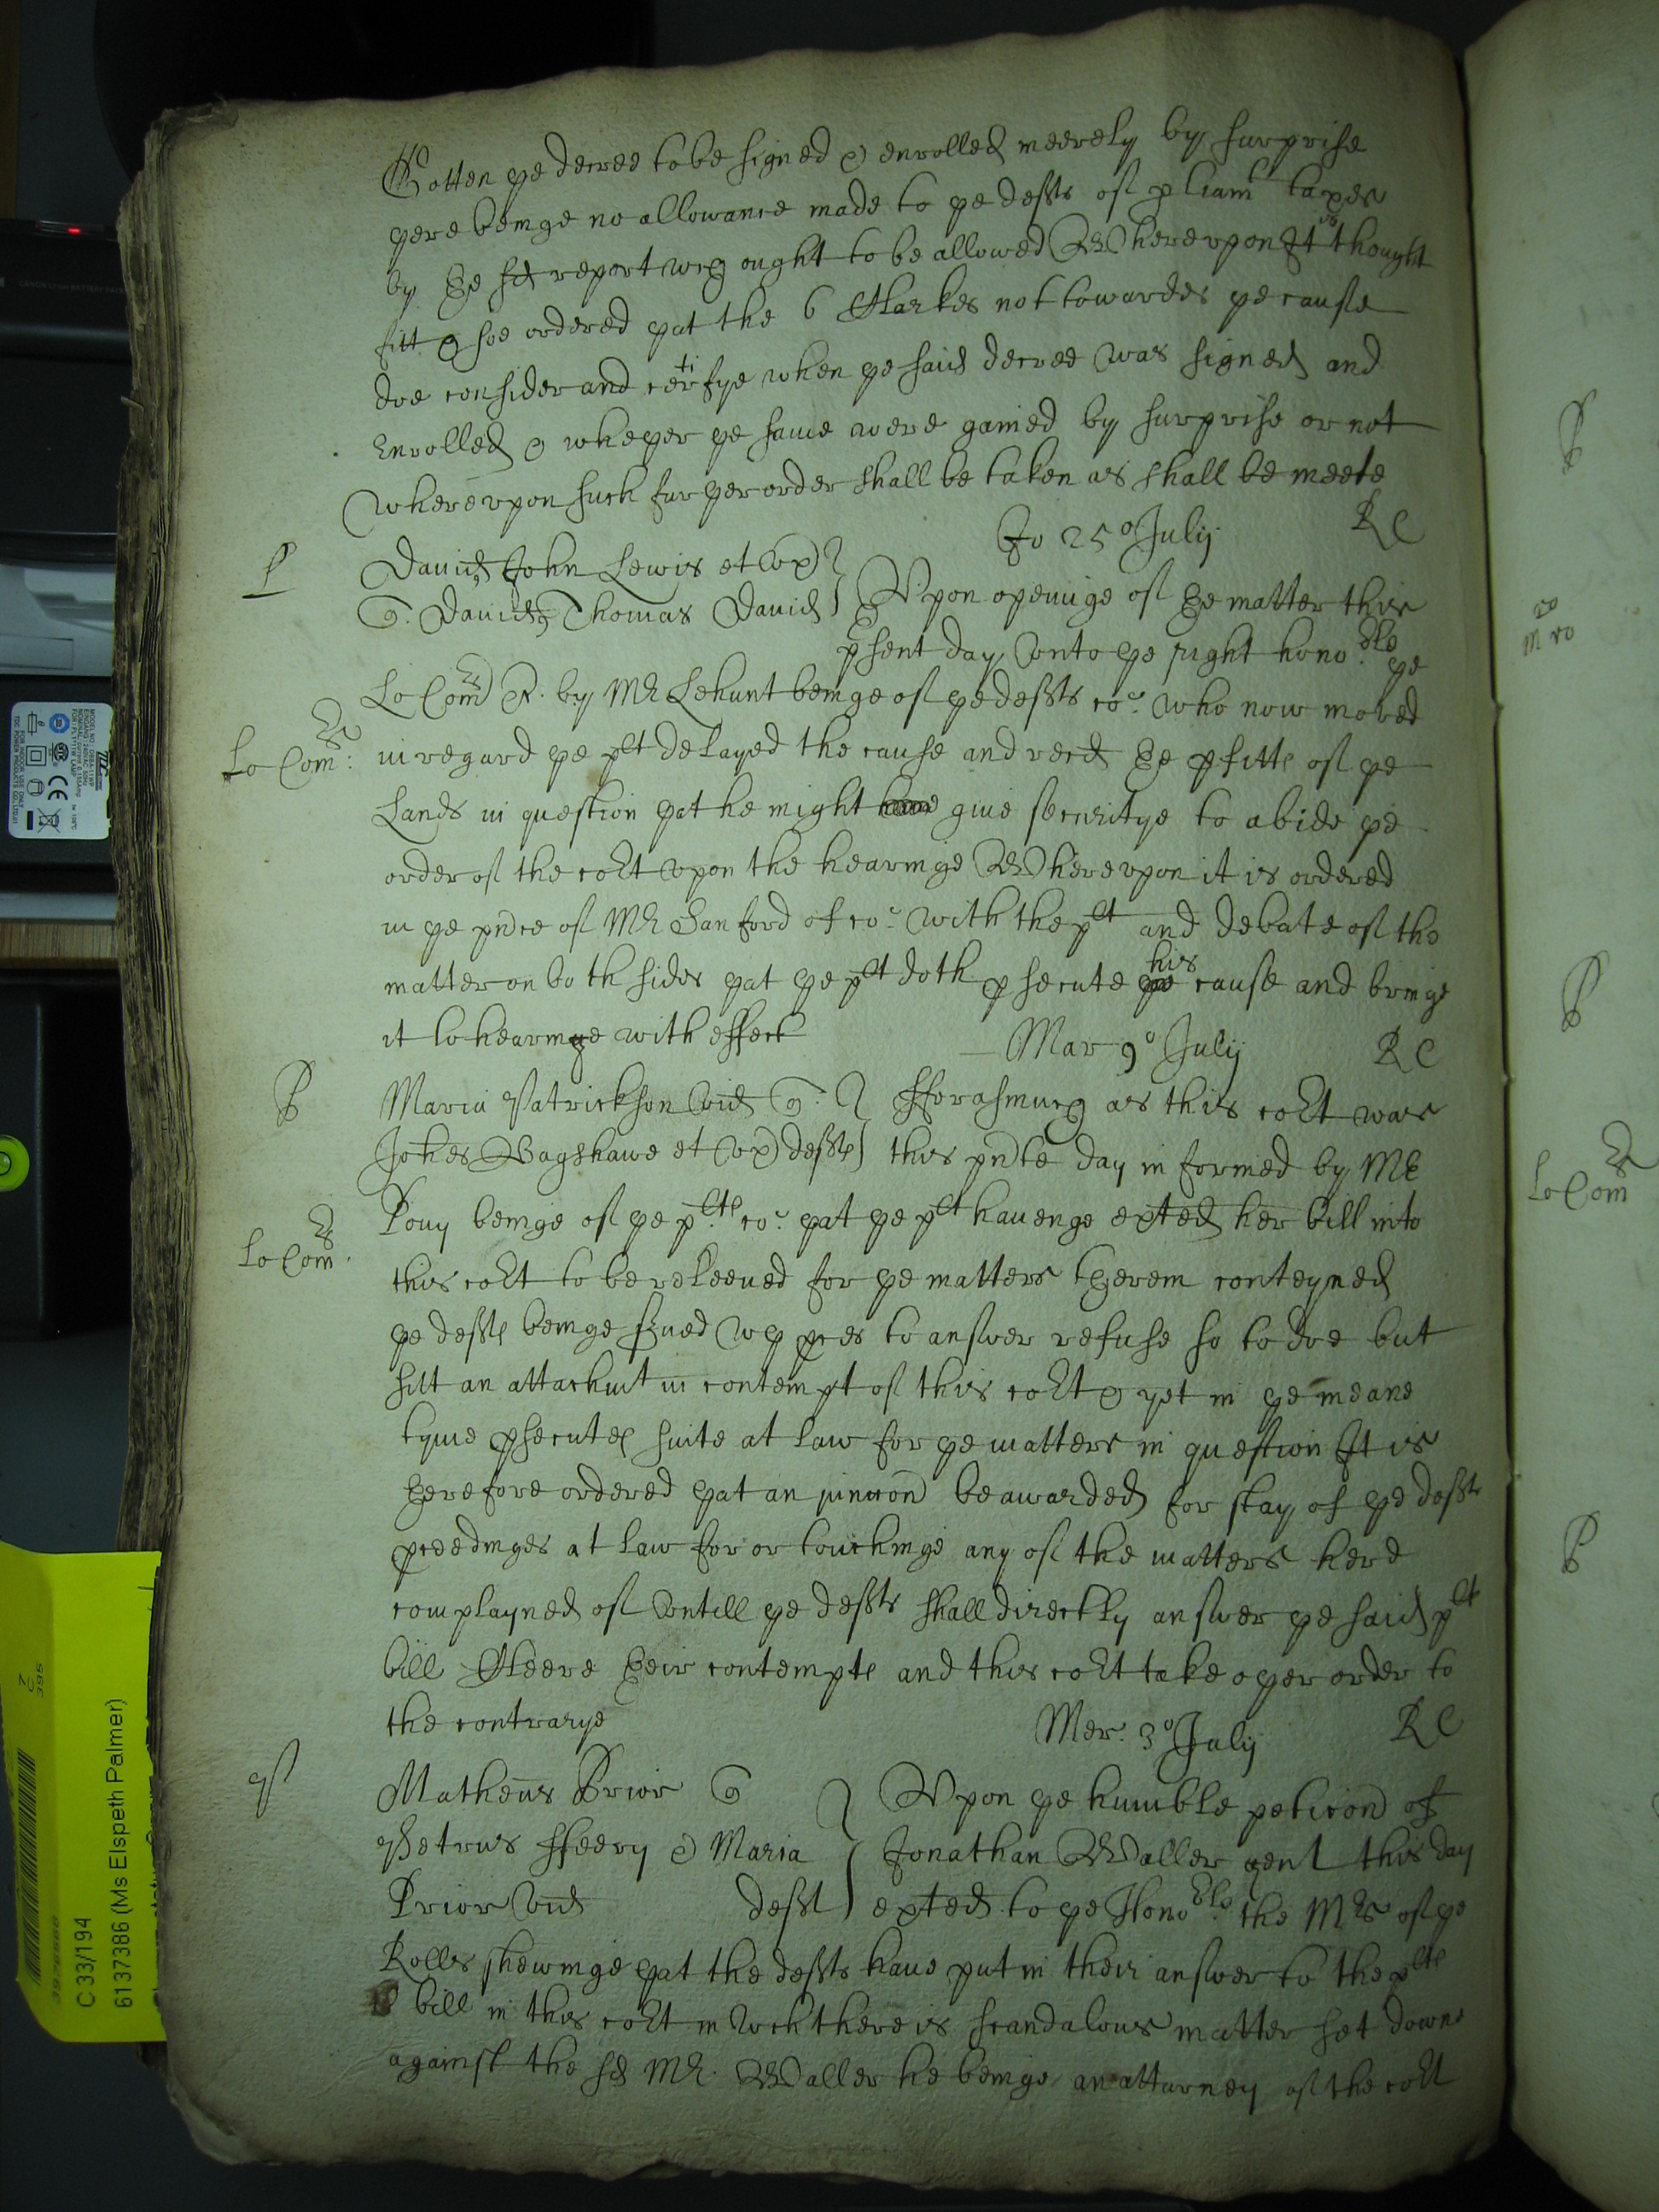 Gotten ye decree to be signed & enrolled meerely by surprise
yere beinge no allowance made to ye defts of pliamt taxes
by ye sd report wch ought to be allowed Wherevpon It is thought
fitt & soe ordered yat the 6 Clarkes not towardes ye cause
doe consider and certifye when ye said decree was signed and
Enrolled & wheyer ye same were gained by surprise or not
wherevpon such furyer order shall be taken as shall be meete
Jo 25o July RC
P David John Lewis et vx
q. David Thomas David Vpon openinge of ye matter this
psent day vnto ye right hono:ble ye
Lo Comrs R. by Mr Lehunt beinge of ye defts co: who now moved
Lo Com:rs in regard ye plt delayed the cause and recd ye pfitts of ye
Lands in question yat he might give securitye to abide ye
order of the cort vpon the hearinge Wherevpon it is ordered
in ye pnce of Mr Sanford of co: with the plt and debate of the
matter on both sides yat ye plt doth psecute his cause and bringe
it to hearinge with effect Mar 9o July RC
P Maria Patrickson vid q. fforasmuch as this cort was
Johes Bagshawe et vx defts this pnte day informed by Mr
Lo Comrs Pouy beinge of ye plts co: yat ye plt havenge exted her bill into
this cort to be releeued for ye matters yerein conteyned
ye defts beinge served wth pces to answer refuse so to doe but
sitt an attachmt in contempt of this cort & yet in ye meane
tyme psecutes suite at law for ye matters in question It is
yerefore ordered yat an iniuncon be awarded for stay of ye defts
pceedinges at law for or touchinge any of the matters here
complayned of vntill ye defts shall directly answer ye said plts
bill Cleere yeir contempts and this cort take oyer order to
the contrarye Mer. 3o July RC
P Matheus Prior q Vpon ye humble peticon of
Petrus ffeery & Maria Jonathan Waller gent this day
Prior vid defts exted to ye Hono:ble the Mr of ye
Rolles shewinge yat the defts haue put in their answer to the plts
bill in this cort in wch there is scandalous matter set downe
against the sd Mr. Waller he beinge an attarney of the cort
Lo Comrs
C 33/194
6137386 (Ms Elspeth Palmer)